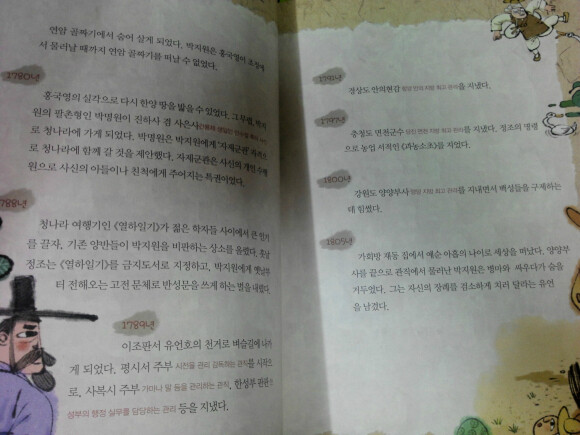 연암 골짜기에서 숨어 살게 되었다. 박지원은 홍국영이 조정에
서 물러날 때까지 연암 골짜기를 떠날 수 없었다.
1780년
홍국영의 실각으로 다시 한양 땅을 밟을 수 있었다. 그 무렵, 박지
원의 팔촌형인 박명원이 진하사 겸 사은사
로 청나라에 가게 되었다. 박명원은 박지원에게 '자제군관' 자격으
로 청나라에 함께 갈 것을 제안했다. 자제군관은 사신의 개인 수행
원으로 사신의 아들이나 친척에게 주어지는 특권이었다.
1788년
청나라 여행기인 《열하일기》가 젊은 학자들 사이에서 큰 인기
를 끌자, 기존 양반들이 박지원을 비판하는 상소를 올렸다. 훗날
정조는 《열하일기》를 금지도서로 지정하고, 박지원에게 옛날부
터 전해오는 고전 문체로 반성문을 쓰게 하는 벌을 내렸다.
1789년
이조판서 유언호의 천거로 벼슬길에 나가
게 되었다. 평시서 주부 시전을 관리 감독하는 관직를 시작으
로, 사복시 주부 가마나 말 등을 관리하는 관직, 한성부 판관 한
성부의 행정 실무를 담당하는 관리 등을 지냈다.
경상도 안의현감 지방 최고 관리를 지냈다.
1797년
충청도 면천군수 당진 면천 지방 최고 관리를 지냈다. 정조의 명령
으로 농업 서적인 《과농소초》를 지었다.
1800년
강원도 양양부사 양양 지방 최고 관리를 지내면서 백성들을 구제하는
데 힘썼다.
1805년
가회방 재동 집에서 예순 아홉의 나이로 세상을 떠났다. 양양부
사를 끝으로 관직에서 물러난 박지원은 병마와 싸우다가 숨을
거두었다. 그는 자신의 장례를 검소하게 치러 달라는 유언
을 남겼다.